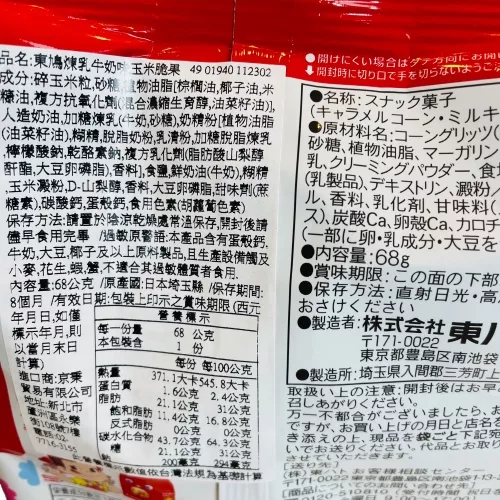 品名:東鳩煉乳牛奶味玉米脆果 49 01940 112302
成分:碎玉米粒,砂糖,植物油脂[棕櫚油,椰子油,米
糠油,複方抗氧化劑(混合濃縮生育醇,油菜籽油)],
人造奶油,加糖煉乳(牛奶,砂糖),奶精粉[植物油脂
(油菜籽油),糊精,脫脂奶粉,乳清粉,加糖脫脂煉乳
,檸檬酸鈉,乾酪素鈉,複方乳化劑(脂肪酸山梨醇
酐酯,大豆卵磷脂),香料],食鹽,鮮奶油(牛奶),糊精,
玉米澱粉,D-山梨醇,香料,大豆卵磷脂,甜味劑(蔗
糖素),碳酸鈣,蛋殼鈣,食用色素(胡蘿蔔色素)
保存方法:請置於陰涼乾燥處常溫保存,開封後請
儘早食用完畢 /過敏原警語:本產品含有蛋殼鈣,
牛奶,大豆,椰子及以上原料製品,且生產設備觸及
小麥,花生,蝦,蟹,不適合其過敏體質者食用.
內容量:68公克 /原產國:日本埼玉縣 /保存期間:
8個月 /有效日期:包裝上印示之賞味期限 (西元
年月日,如僅
標示年月,則
以當月末日
計算)
進口商:京秉
貿易有限公司
地址:新北市
蘆洲區永樂
街108號7樓
電話:02-
7716-3155
營養標示
每一份量 68 公克
本包裝含 1 份
每份 每100公克
熱量 371.1大卡 545.8大卡
蛋白質 1.6公克 2.4公克
脂肪 21.1公克 31公克
飽和脂肪 11.4公克 16.8公克
反式脂肪 0公克 0公克
碳水化合物 43.7公克 64.3公克
糖 21.1公克 31公克
鈉 200毫克 294毫克
營養標示數值依台灣法規為基礎計算
●開けにくい場合はタテ方向にお開け
↓開封時に切り口で手を切らないようご
●名称:スナック菓子
(キャラメルコーン・ミルキ
●原材料名:コーングリッツ(
砂糖、植物油脂、マーガリン
乳、クリーミングパウダー、食塩
(乳製品)、デキストリン、澱粉
ル、香料、乳化剤、甘味料(
ス)、炭酸Ca、卵殻Ca、カロチ
(一部に卵・乳成分・大豆を
●内容量:68g
●賞味期限:この面の下部
●保存方法:直射日光・高
おさけください
●製造者:株式会社東ハ
〒171-0022
東京都豊島区南池袋
●製造所:埼玉県入間郡三芳町上
取扱い上の注意:開封後はお早
召しあがりください。
万一不都合がございましたら、ま
ですが、お買い上げの月日と店名を
き添えの上、現品を袋ごと下記宛
いでお送りください。代品とお取り
させていただきます。
[送り先]
(株)東ハト お客様相談センター
〒171-0022 東京都豊島区南池袋